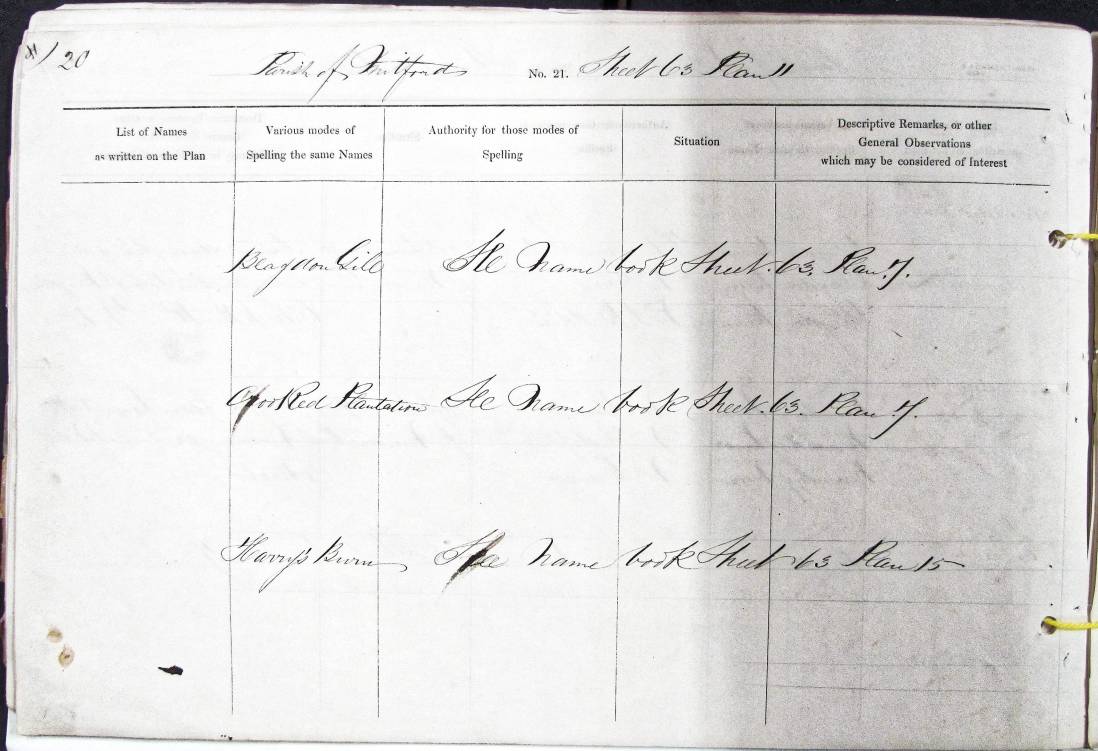 120
Parish of Mitford No. 21. Sheet 63 Plan 11
List of Names
as written on the Plan
Various modes of
Spelling the same Names
Authority for those modes of
Spelling
Situation
Descriptive Remarks, or other
General Observations
which may be considered of Interest
Beagdon Gill See Name book Sheet. 63. Plan. 7.
Crooked Plantation See Name book Sheet. 63. Plan 7.
Harry's Burn See Name book Sheet 63 Plan 15